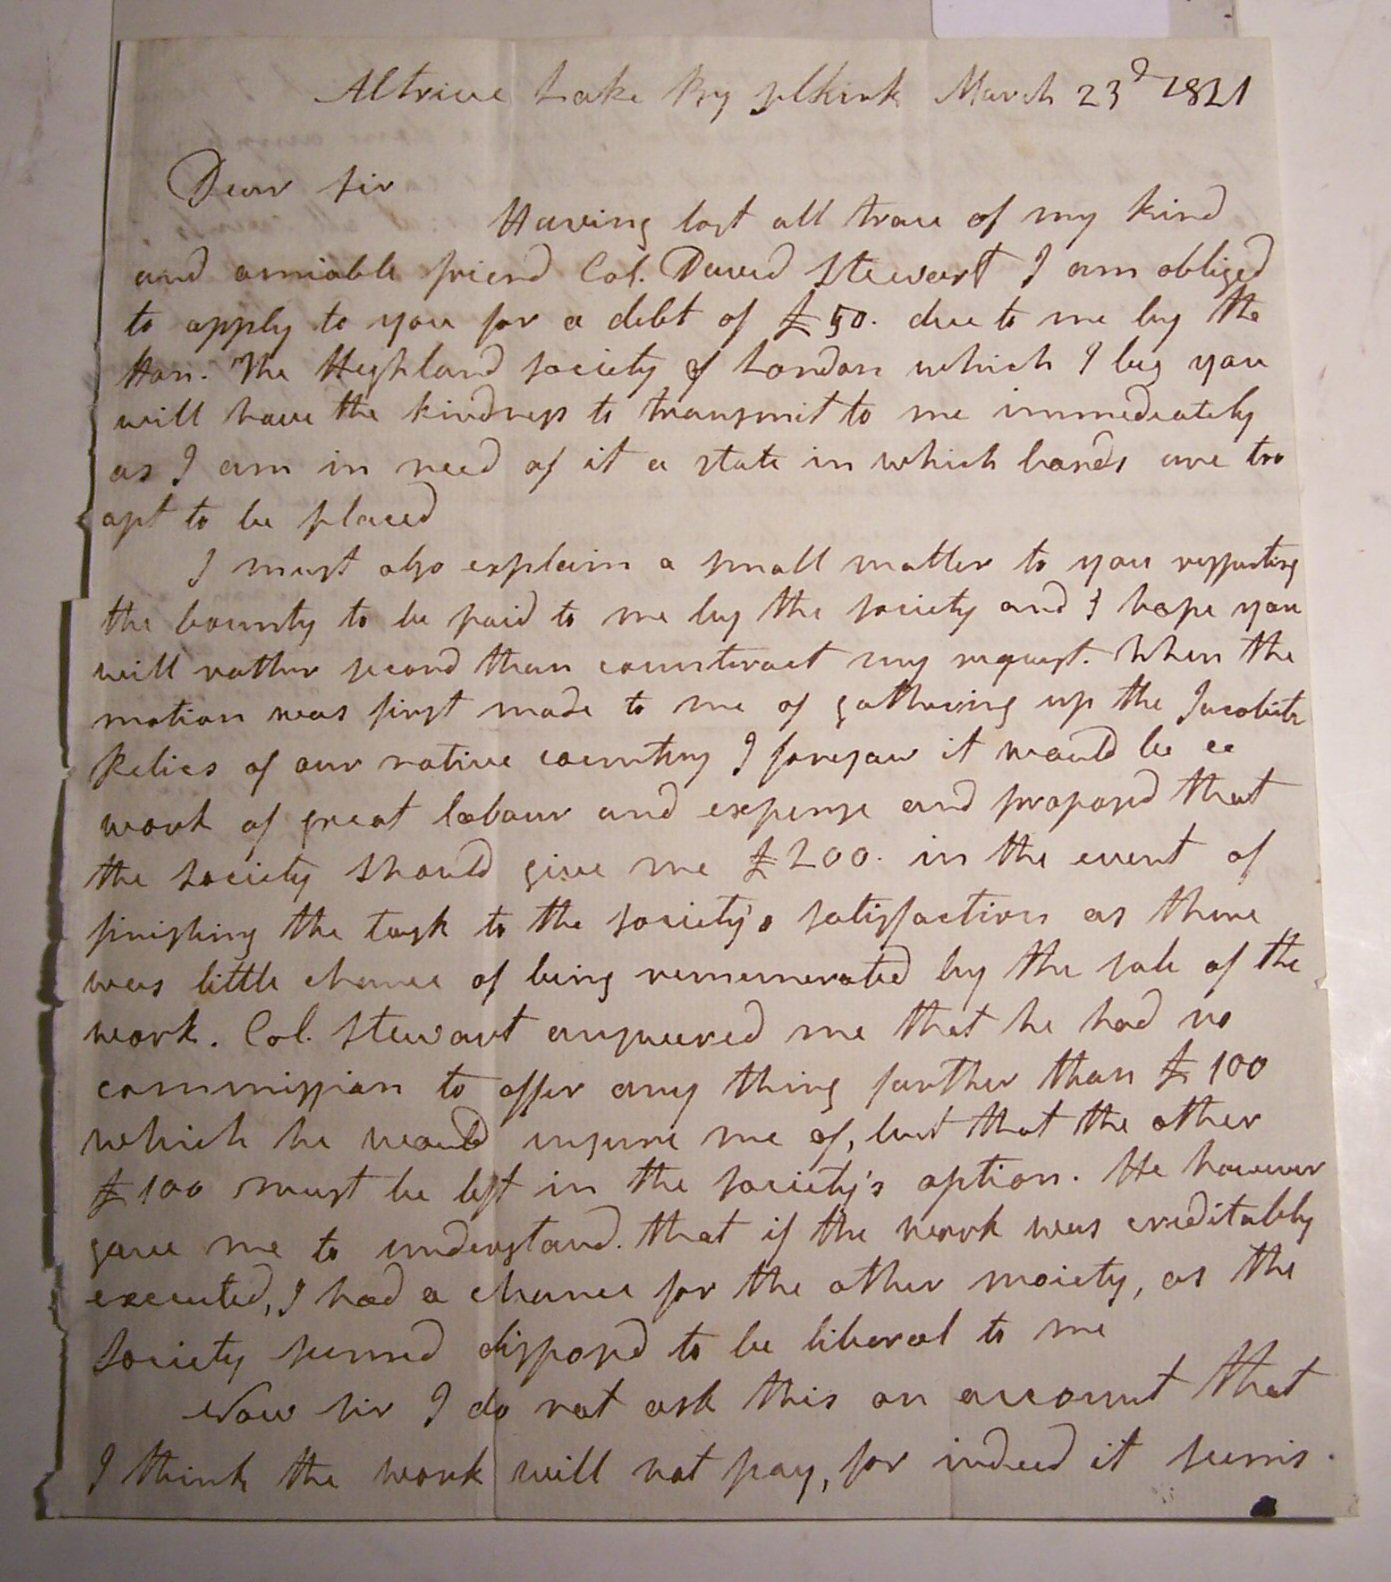 Altrive Lake By Selkirk March 23d 1821
Dear Sir
Having lost all trace of my kind
and amiable friend Col. David Stewart I am obliged
to apply to you for a debt of £50. due to me by the
Hon. The Highland Society of London which I beg you
will have the kindness to transmit to me immediately
as I am in need of it a state in which bards are too
apt to be placed
I must also explain a small matter to you respecting
the bounty to be paid to me by the society and I hope you
will rather second than counteract my request. When the
motion was first made to me of gathering up the Jacobite
Relics of our native country I foresaw it would be a
work of great labour and expense and proposed that
the Society should give me £200. in the event of
finishing the task to the society's satisfaction as there
was little chance of being remunerated by the sale of the
work. Col. Stewart answered me that he had no
commission to offer any thing farther than £100
which he would insure me of, but that the other
£100 must be left in the society's option. He however
gave me to understand that if the work was creditably
executed, I had a chance for the other moiety, as the
Society seemed disposed to be liberal to me
Now Sir I do not ask this on account that
I think the work will not pay, for indeed it seems